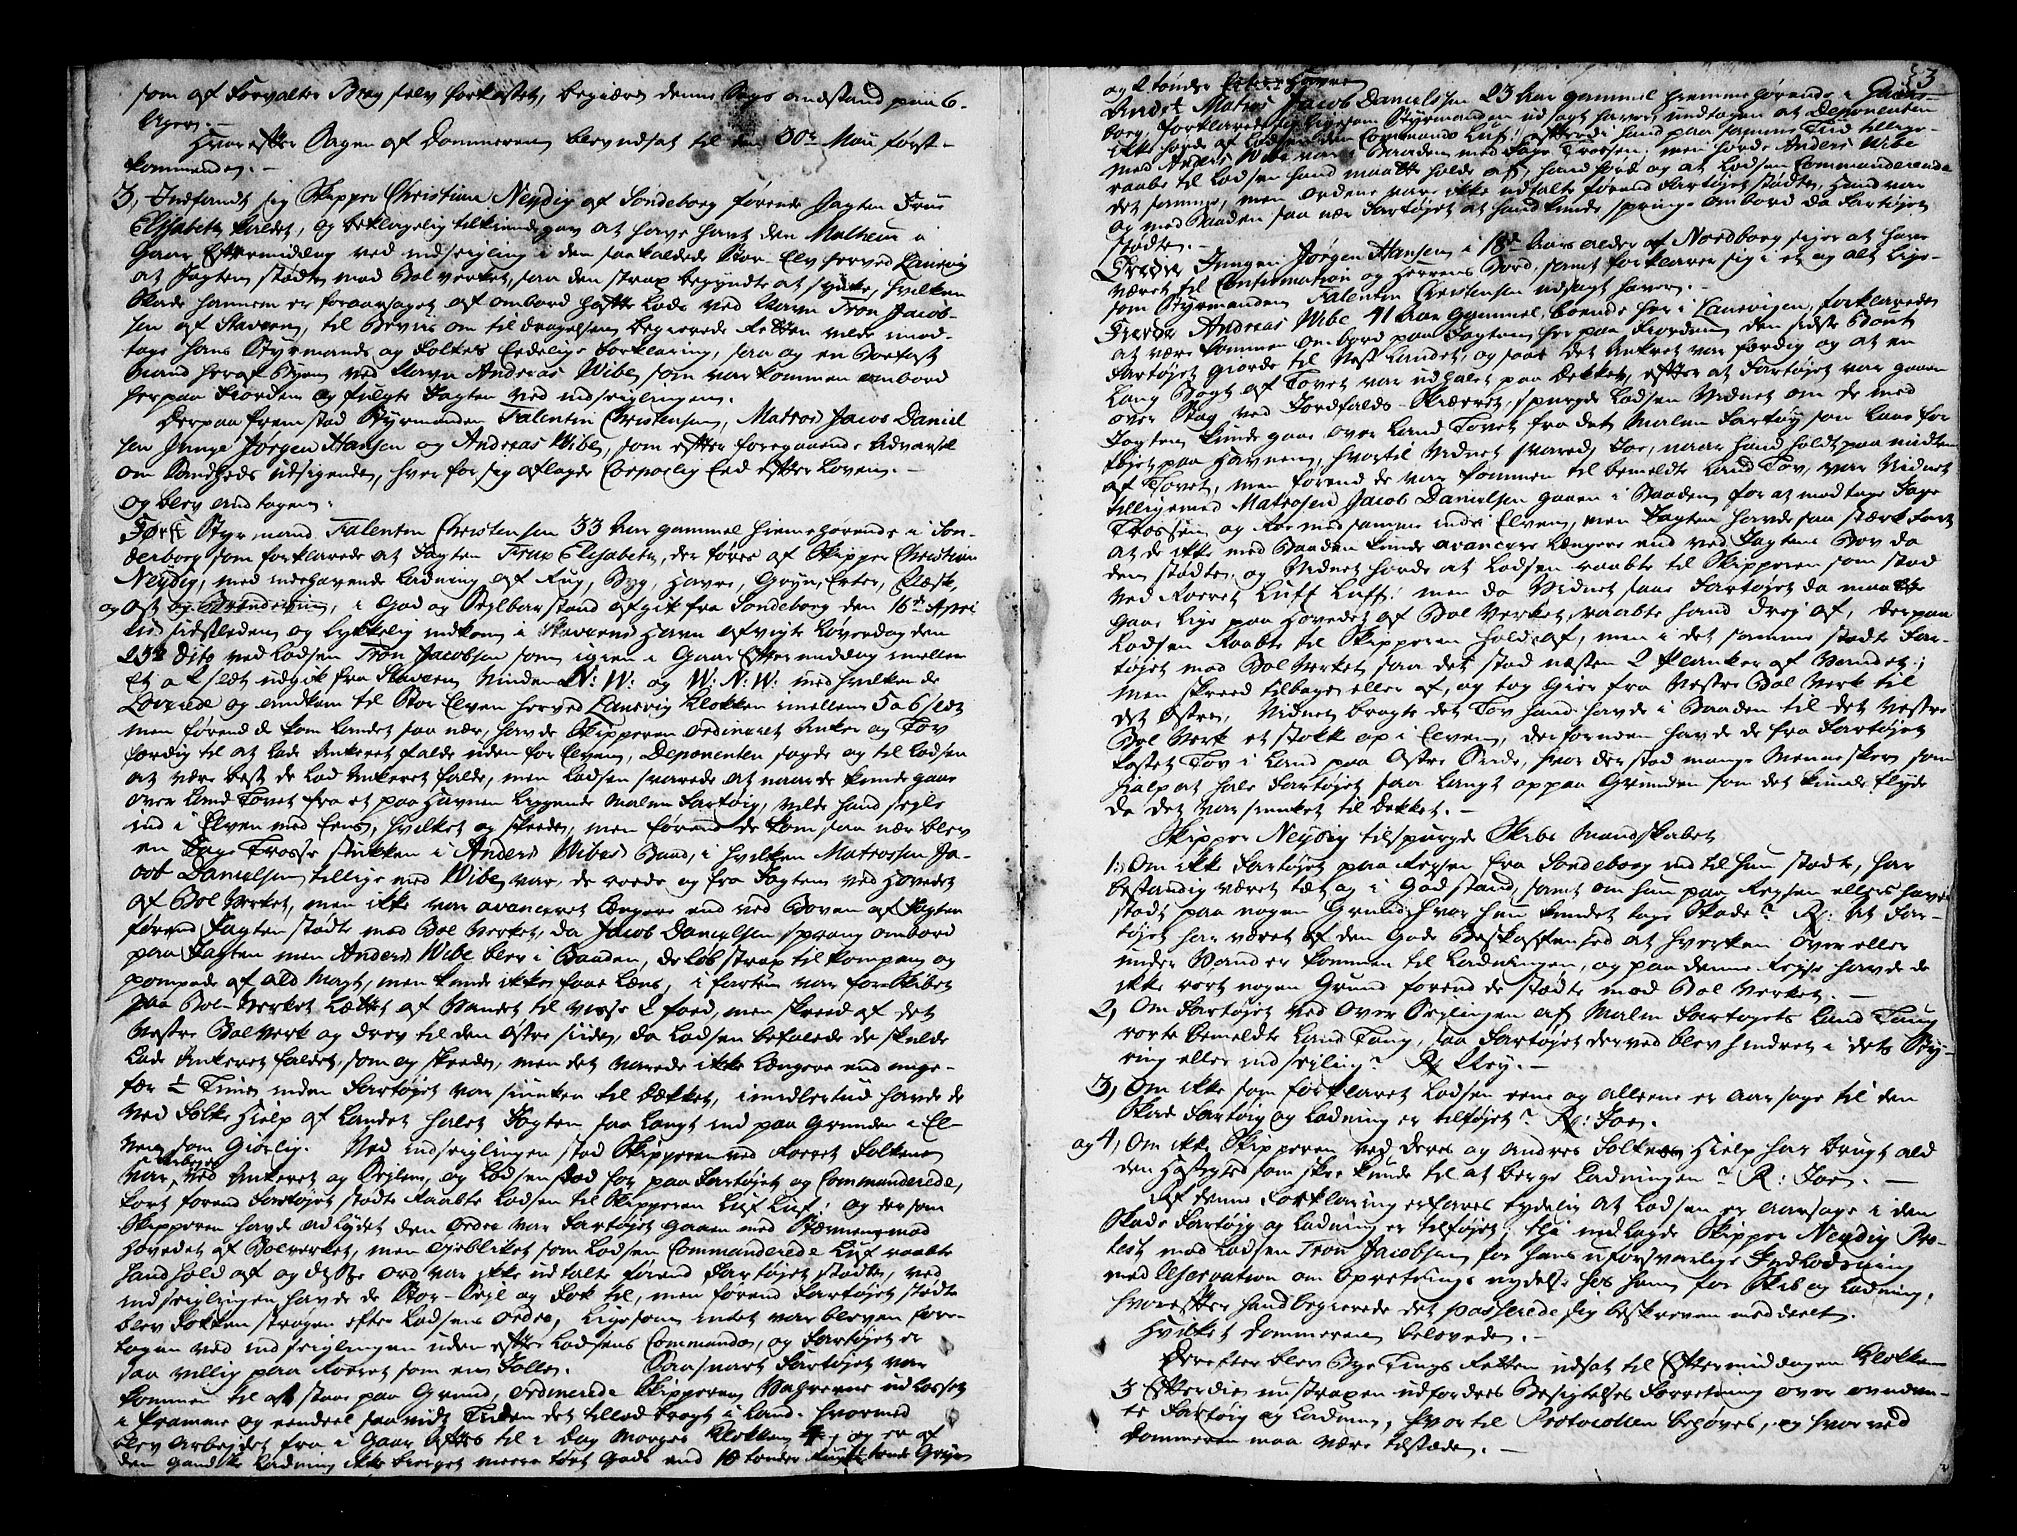 som af Forvalter Bray selv forkastet, begiærer denne Sags anstand paa 6.
Uger. –
Hvorefter Sagen af Dommeren blev udsat til den 30te Maii først-
kommende. –
3, Indfandt sig Skipper Christian Neydig af Sonderborg førende Jagten Frue
Elisabeth kaldet, og beklagelig tilkiendegav at have havt den Malheur i
Gaar Eftermiddag ved indseigling i den saakaldede Stor-Elv herved Laurvig
at Jagten stødte mod Bolverket, saa den strax begyndte at synke, hvilken
Skade hannem er foraarsaget af ombord hafte Lods ved Navn Tron Jacob-
sen af Stavern, til Beviis om tildragelsen begierede Retten vilde imod-
tage hans Styrmands og Folkes Eedelige forklaring, saa og en Boefast
Mand her af Byen ved Navn Andreas Wibe, som var kommen ombord
her paa Fiorden og fulgte Jagten ved indseiglingen.
Derpaa fremstod Styrmanden Falentin Christensen, Matros Jacob Daniel
sen Junge Jørgen Hansen og Andreas Wibe, som efter foregaaende Advarsel
om Sandheds udsigende, hver for sig aflagde Corporlig Eed efter Loven. –
og blev antagen.
Først Styrmand Falentin Christensen 33 Aar gammel hiemmehørende i Son-
derborg som forklarede at Jagten Frue Elisabeth, der føres af Skipper Christian
Neydig, med indehavende Ladning af Rug, Byg, Havre, Gryn, Erter, Flesk,
og Ost og Brændeviin, i god og Seylbar stand afgik fra Sonderborg den 16de April
sidstleden og lykkelig indkom i Staverns Havn afvigte Løverdag den
23de dito ved Lodsen Tron Jacobsen som igien i Gaar Eftermiddag imellem
Et a 2 slet udgik fra Stavern Vinden N: W: og W: N: W: med hvilken de
Loverede og ankom til Stor Elven herved Laurvig Klokken imellem 5 a 6 slet
men førend de kom Landet saa nær, havde Skipperen ordineret Anker og Tov
færdig til at lade Ankeret falde uden for Elven, Deponenten sagde og til Lodsen
at være best de lod Ankeret falde, men Lodsen svarede at naar de kunde gaae
over Land Tovet fra et paa Havnen liggende Malm Fartøy, vilde hand seyle
ind i Elven med Eens, hvilket og skeede, men førend de kom saa nær blev
en Fage Trosse stukken i Anders Wibes Baad, i hvilken Matrossen Ja-
cob Danielsen tillige med Wibe var, de roede og fra Jagten ved Hovedet
af Bol Verket, men ikke var avanceret længere end ved Boven af Jagten
førend Jagten stødte mod Bol Verket, da Jacob Danielsen sprang ombord
paa Jagten men Anders Wibe blev i Baaden, de løb strax til Pompen og
pompede af ald Magt, men kunde ikke faae Læns, i farten var for Skibet
paa Bol-Verket Lettet af Vandet til visse 2 food, men skreed af det
Vestre Bolverk og drev til den østre siide, da Lodsen befalede de skulde
lade Ankeret falde, som og skeede, men det varede ikke længere end unge-
fær ½ Time inden Fartøyet var siunken til Dækket, imidlertiid havde de
ved Folke Hielp af Landet halet Jagten saa langt ind paa Grunden i El-
ven som giørlig. Ved indseiglingen stod Skipperen ved Roeret Folkene
var ved Ankeret og Seylene, og Lodsen stod for paa Fartøyet og Commanderede,
kort førend Fartøyet stødte Raabte Lodsen til Skipperen Luf Luf! og dersom
Skipperen havde adlydet den Ordre var Fartøyet gaaen med Stævnen mod
Hovedet af Bolverket, men øyebliket som Lodsen Commanderede Luf raabte
hand hold af og disse ord var ikke udtalte førend Fartøyet stødte, ved
indseiglingen havde de Stor-Seyl og Fok til, men førend Fartøyet stødte
blev Fokken strøgen efter Lodsens Ordre, ligesom intet var bleven fore-
tagen ved indseiglingen uden efter Lodsens Commando, og Fartøyet er
saa villig paa Roeret som en Jolle. Saasnart Fartøyet var
kommen til at staae paa Grund, ordinerede Skipperen Vahrerne udlosset
i Pramme og eendeel saavidt Tiden det tillod bragt i Land. Hvormed
blev Arbejdet fra i Gaar Aftes til i Dag Morges Klokken og er af
den gandske Ladning ikke bierget meere tørt Gods end 10 tønder Rug tønde Gryn
83
og 2 tønder Havre
Andet Matros Jacob Danielsen 23 Aar gammel hiemmehørende i
borg, forklarede sig ligesom Styrmanden udsagt haver, undtagen at Deponenten
ikke hørde af Lodsen den Commando Luf! efterdi hand paa samme Tiid tillige-
med Anders Wibe var i Baaden med Fage Trossen, men hørde Anders Wibe
raabe til Lodsen hand maatte holde af, hand hørd og at Lodsen Commanderede
det samme, men ordene vare ikke udtalte førend Fartøyet stødte, Hand var
og med Baaden saa nær Fartøyet at hand kunde springe ombord da Fartøyet
stødte. –
Tredie Jungen Jørgen Hansen i 18de Aars alder af Nordborg siger at have
været til Confirmation og Herrens Bord, samt forklarer sig i et og alt lige-
som Styrmanden Falentin Christensen udsagt haver. –
Fierde Andreas Wibe 41 Aar gammel, boende her i Laurvigen, forklarede
at være kommen ombord paa Jagten her paa Fiorden den sidste Bout
Fartøyet giorde til Vest Landet, og saae det Ankret var færdig og at en
lang Bogt af Tovet var udhalet paa Dekket, efter at Fartøyet var gaaen
over Stag ved Jordfalds-Skiæret, spurgte Lodsen Vidnet om de med
Jagten kunde gaae over Land Tovet fra det Malm Fartøy som laae for
tøjet paa Havnen, hvortil Vidnet svarede, Joe, naar hand holdt paa midten
af Tovet, men førend de var kommen til bemeldte Land Tov, var Vidnet
tilligemed Matrosen Jacob Danielsen gaaen i Baaden for at modtage Fage
Trossen og Roe med samme ind i Elven, men Jagten havde saa stærk Fart
at de ikke med Baaden kunde avancere længere end ved Jagtens Bov da
den stødte, og Vidnet hørde at Lodsen raabte til Skipperen som stod
ved Roeret Luff Luff! men da Vidnet saae Fartøyet da maatte
gaae lige paa Hovedet af Bol Verket, raabte hand drej af, derpaa
Lodsen Raabte til Skipperen hold af, men i det samme stødte Far-
tøjet mod Bol Verket saa det stod næsten 2 Planker af Vandet;
Men skreed tilbage eller af, og tog Gier fra Vestre Bol Verk til
det Østre, Vidnet bragte det Tov hand havde i Baaden til det Vestre
Bol Verk et støkke op i Elven, des foruden havde de fra Fartøyet
kastet Tov i Land paa Østre Siide, hvor der stod mange Mennesker som
hialp at hale Fartøyet saa langt op paa Grunden som det kunde flyde
da det var siunket til Dekket. –
Skipper Neydig tilspurgte Skibs Mandskabet
1:, Om ikke Fartøyet paa Reysen fra Sonderborg ind til hun stødte, har
bestandig været tæt og i god stand, samt om hun paa Reysen ellers havde
stødt paa nogen Grund, hvor hun kundet tage Skade? R: At Far-
tøjet har været af den gode Beskaffenhed at hverken over eller
under Vand er kommen til Ladningen, og paa denne Reyse havde de
ikke rørt nogen Grund førend de stødte mod Bol Verket. –
2, Om Fartøyet ved over Seylingen af Malm Fartøyets Land Taug
rørte bemeldte Land Taug, saa Fartøyet derved blev hindret i dets Sty-
ring eller indseyling? R: Ney. –
3, Om ikke som forklaret Lodsen eene og alleene er aarsage til den
Skade Fartøy og Ladning er tilføjet? R: Joe.
og 4, Om ikke Skipperen ved deres og andres Folkes Hielp har brugt ald
den Hastighed som skee kunde til at berge Ladningen? R: Joe. –
Af denne Forklaring erfares tydelig at Lodsen er Aarsage i den
Skade Fartøy og Ladning er tilføjet; thi indlagde Skipper Neydig Pro-
test mod Lodsen Tron Jacobsen for hans uforsvarlige Ind Lodsning
med Reservation om opretnings nydelse hos ham for Skib og Ladning,
hvorefter hand begierede det passerede sig beskreven meddeelt.
Hvilket Dommeren belovede. –
Derefter blev Bye Tings Retten udsat til Eftermiddagen Klokken
3 Efterdi nu strax en udfordres Besigtelses Forretning over ovenom-
te Fartøy og Ladning, hvortil Protocollen behøves, og hvor ved
Dommeren maa være tilstæde. –